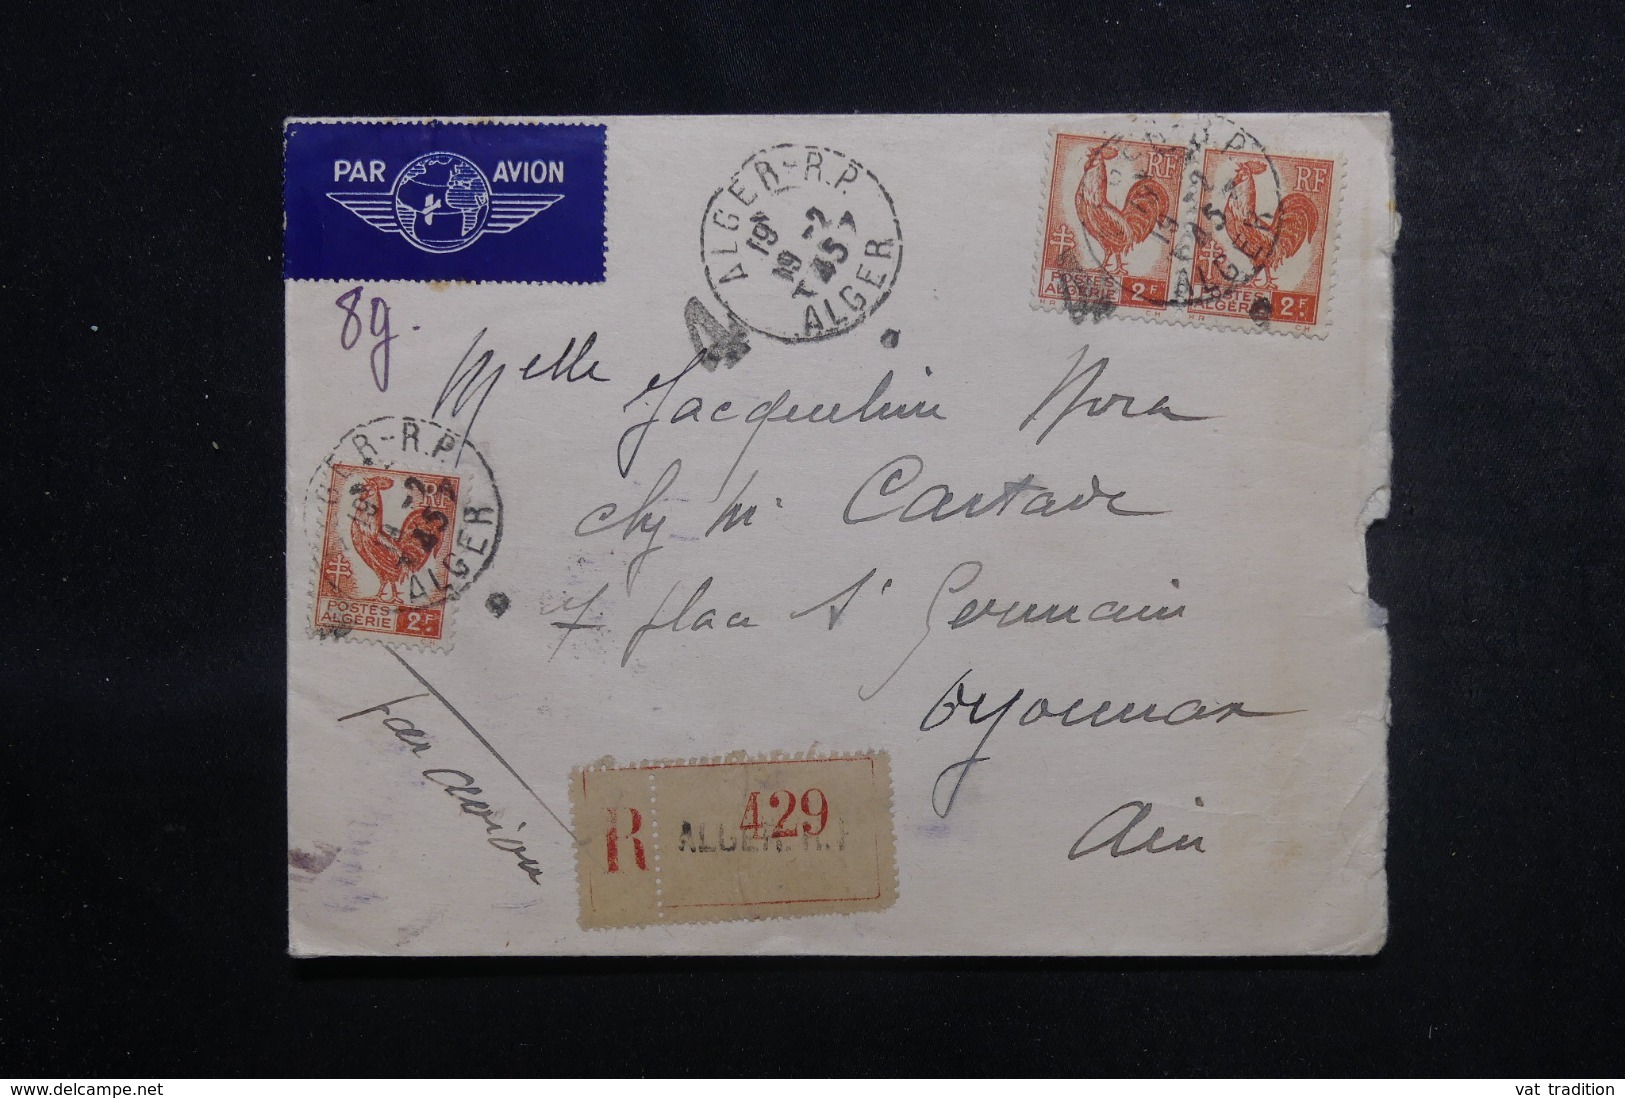 PAR AVION
8g.
ALGER-R.P.
19H
19 -2
45
ALGER
RF
POSTES
ALGERIE 2F.
RF
POSTES
ALGERIE 2F.
Melle Jacqueline Mora
chez Mr
7 place St Germain
Oyonnax
Ain
ALGER-R.P.
19H
19 -2
45
ALGER
RF
POSTES
ALGERIE 2F.
par avion
R 429
ALGER. R.P
www.delcampe.net
vat tradition